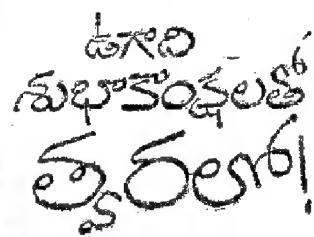 ఉగాది
శుభాకాంక్షలతో
త్వరలో!